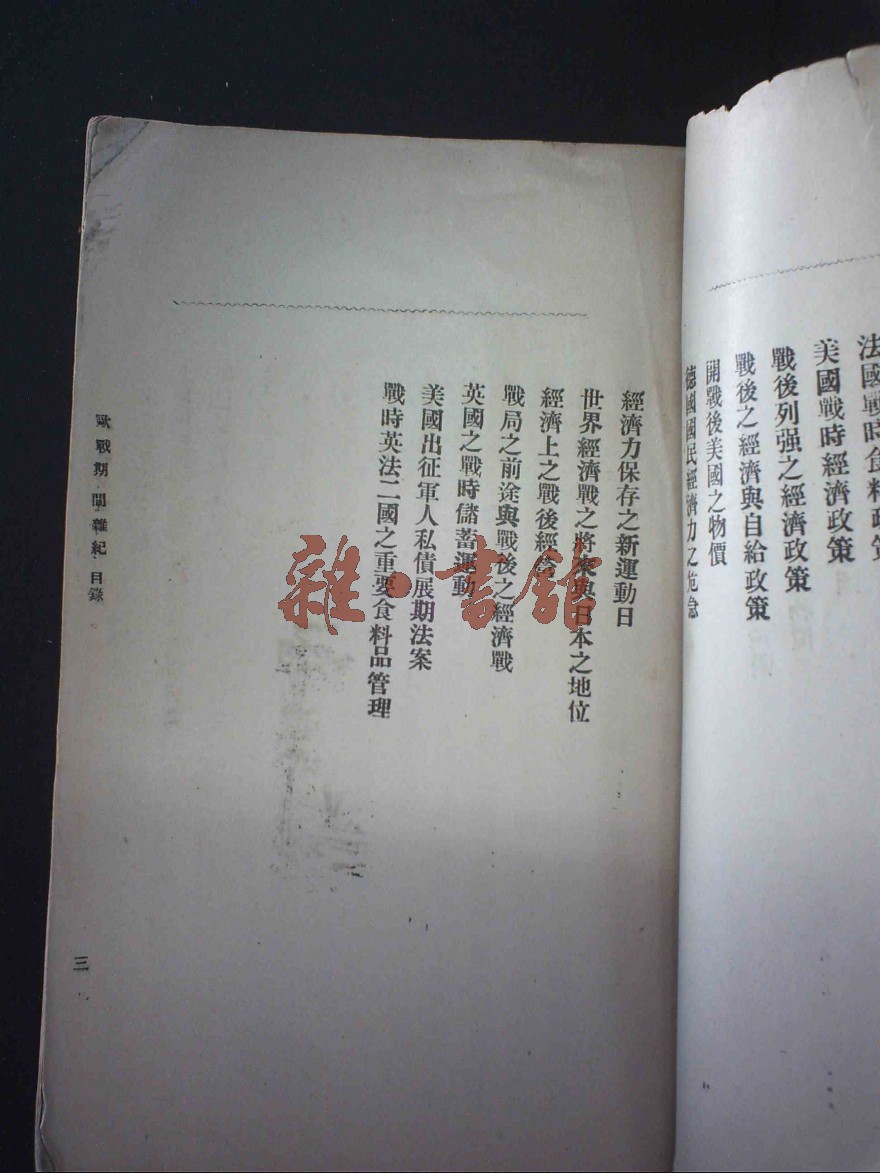 法國戰時食料政策
美國戰時經濟政策
戰後列强之經濟政策
戰後之經濟與自給政策
開戰後美國之物價
德國國民經濟力之危急
經濟力保存之新運動日
世界經濟戰之將來與日本之地位
經濟上之戰後經營
戰局之前途與戰後之經濟戰
英國之戰時儲蓄運動
美國出征軍人私債展期法案
戰時英法二國之重要食料品管理
歐戰期間雜紀 目錄
三
雜·書館